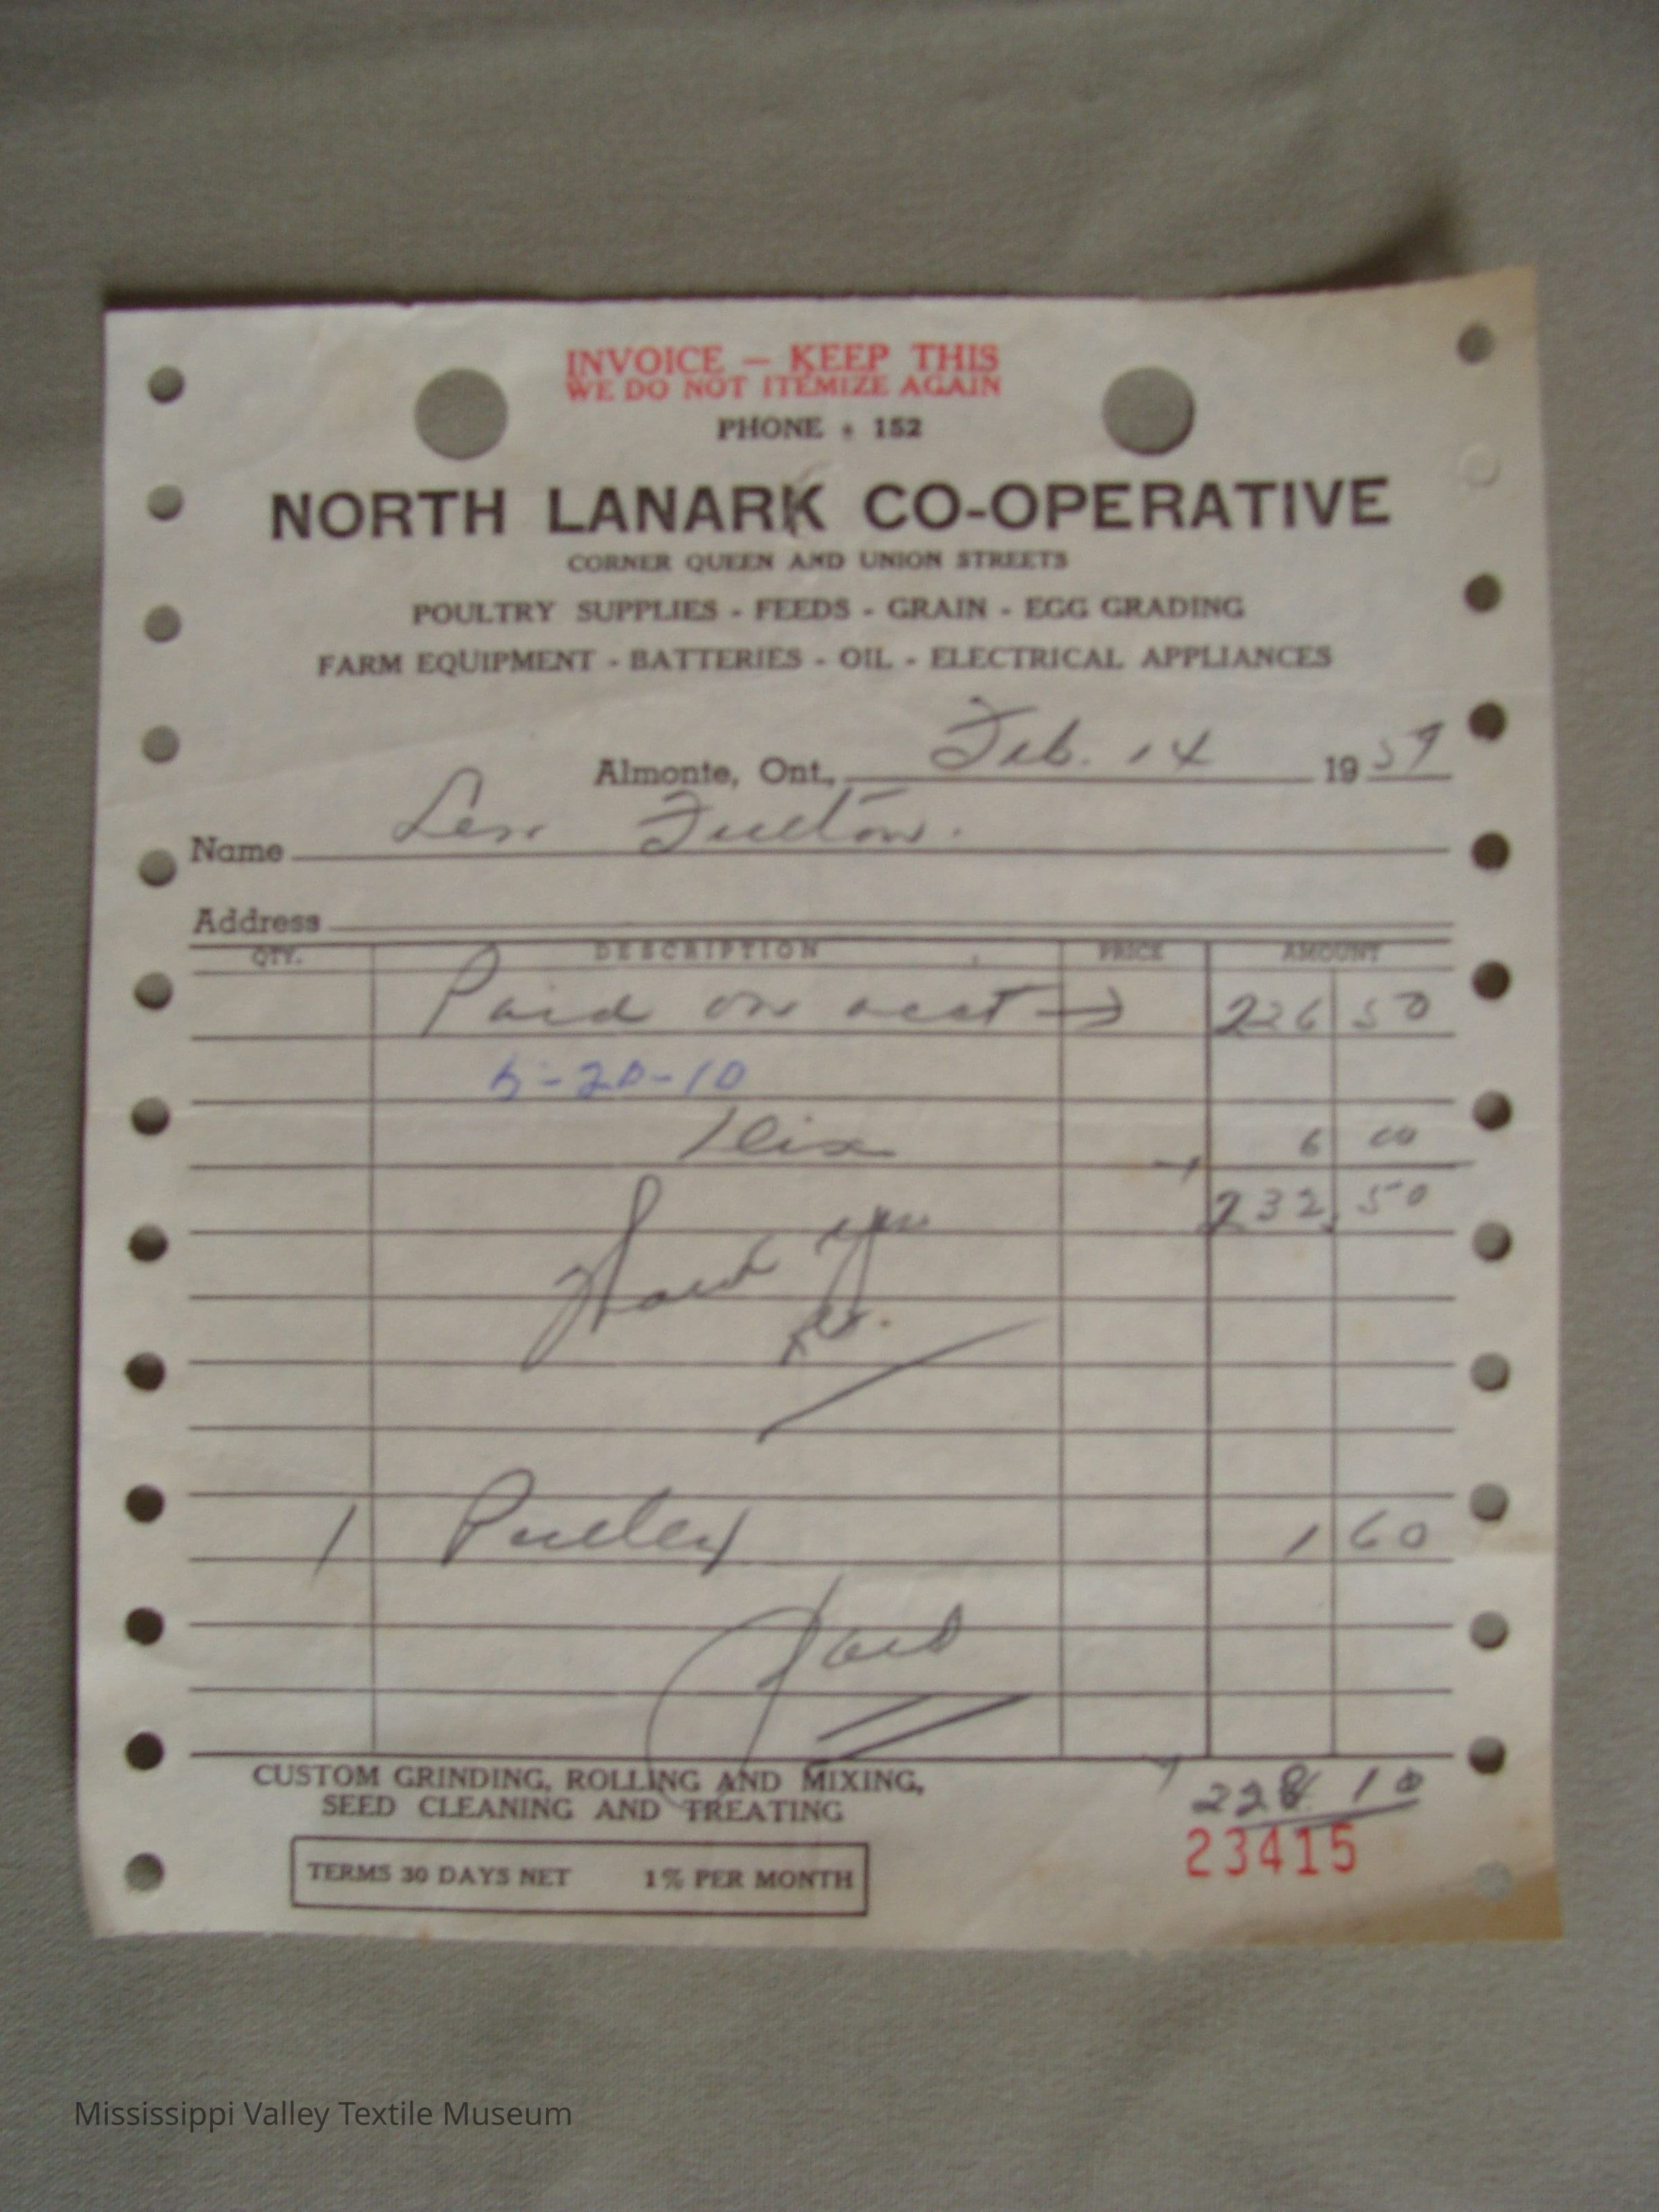 INVOICE — KEEP THIS
WE DO NOT ITEMIZE AGAIN
PHONE • 152
NORTH LANARK CO-OPERATIVE
CORNER QUEEN AND UNION STREETS
POULTRY SUPPLIES - FEEDS - GRAIN - EGG GRADING
FARM EQUIPMENT - BATTERIES - OIL - ELECTRICAL APPLIANCES
Almonte, Ont., Feb. 14 1959
Name Fulton.
Address
QTY. DESCRIPTION PRICE AMOUNT
Paid on acct → 226 50
5-20-10
6 00
232.50
Thank you
1 Pulley 1 60
Paid
CUSTOM GRINDING, ROLLING AND MIXING,
SEED CLEANING AND TREATING
228 10
TERMS 30 DAYS NET 1% PER MONTH
23415
Mississippi Valley Textile Museum